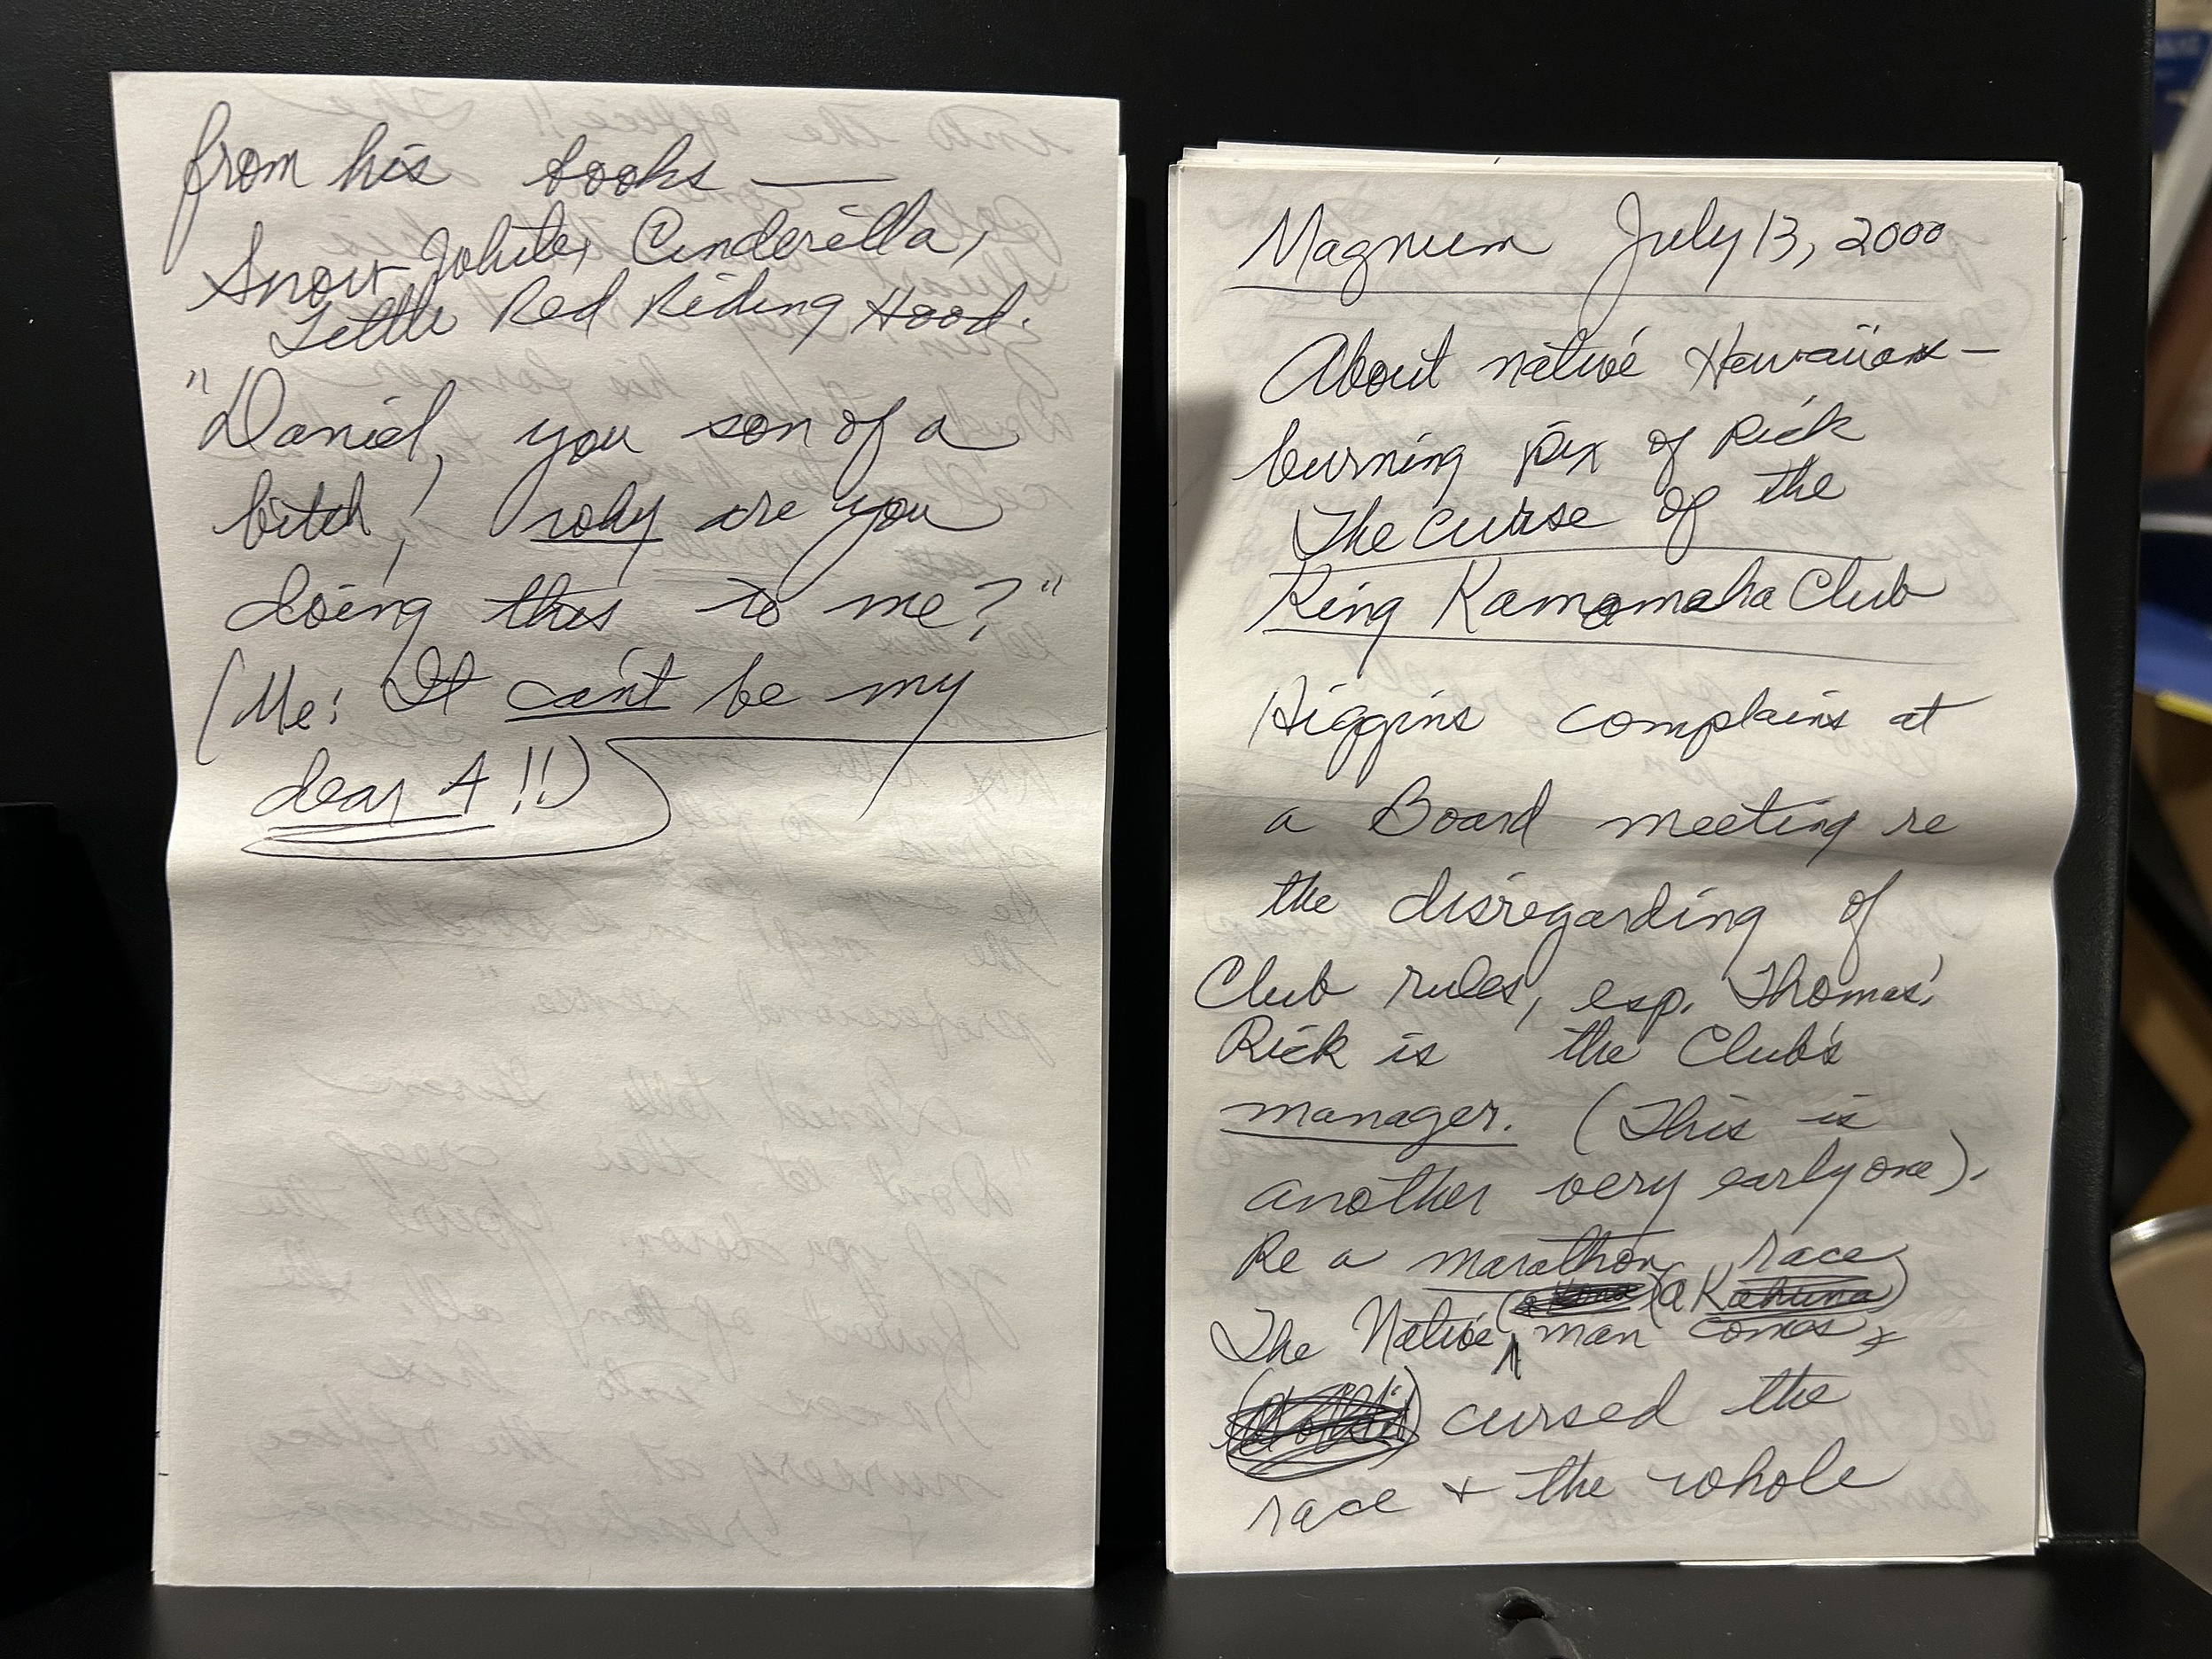 from his books —
Snow White, Cinderella,
Little Red Riding Hood.
"Daniel, you son of a
bitch! why are you
doing this to me?"
(Me: It can't be my
dear A!!)
Magnum July 13, 2000
About native Hawaiian —
burning pix of Rick
The Curse of the
King Kamamaha Club
Higgins complains at
a Board meeting re
the disregarding of
Club rules, esp. Thomas'.
Rick is the Club's
manager. (This is
another very early one).
Re a marathon race
(a Kahuna)
The Native man comes, +
cursed the
race + the whole